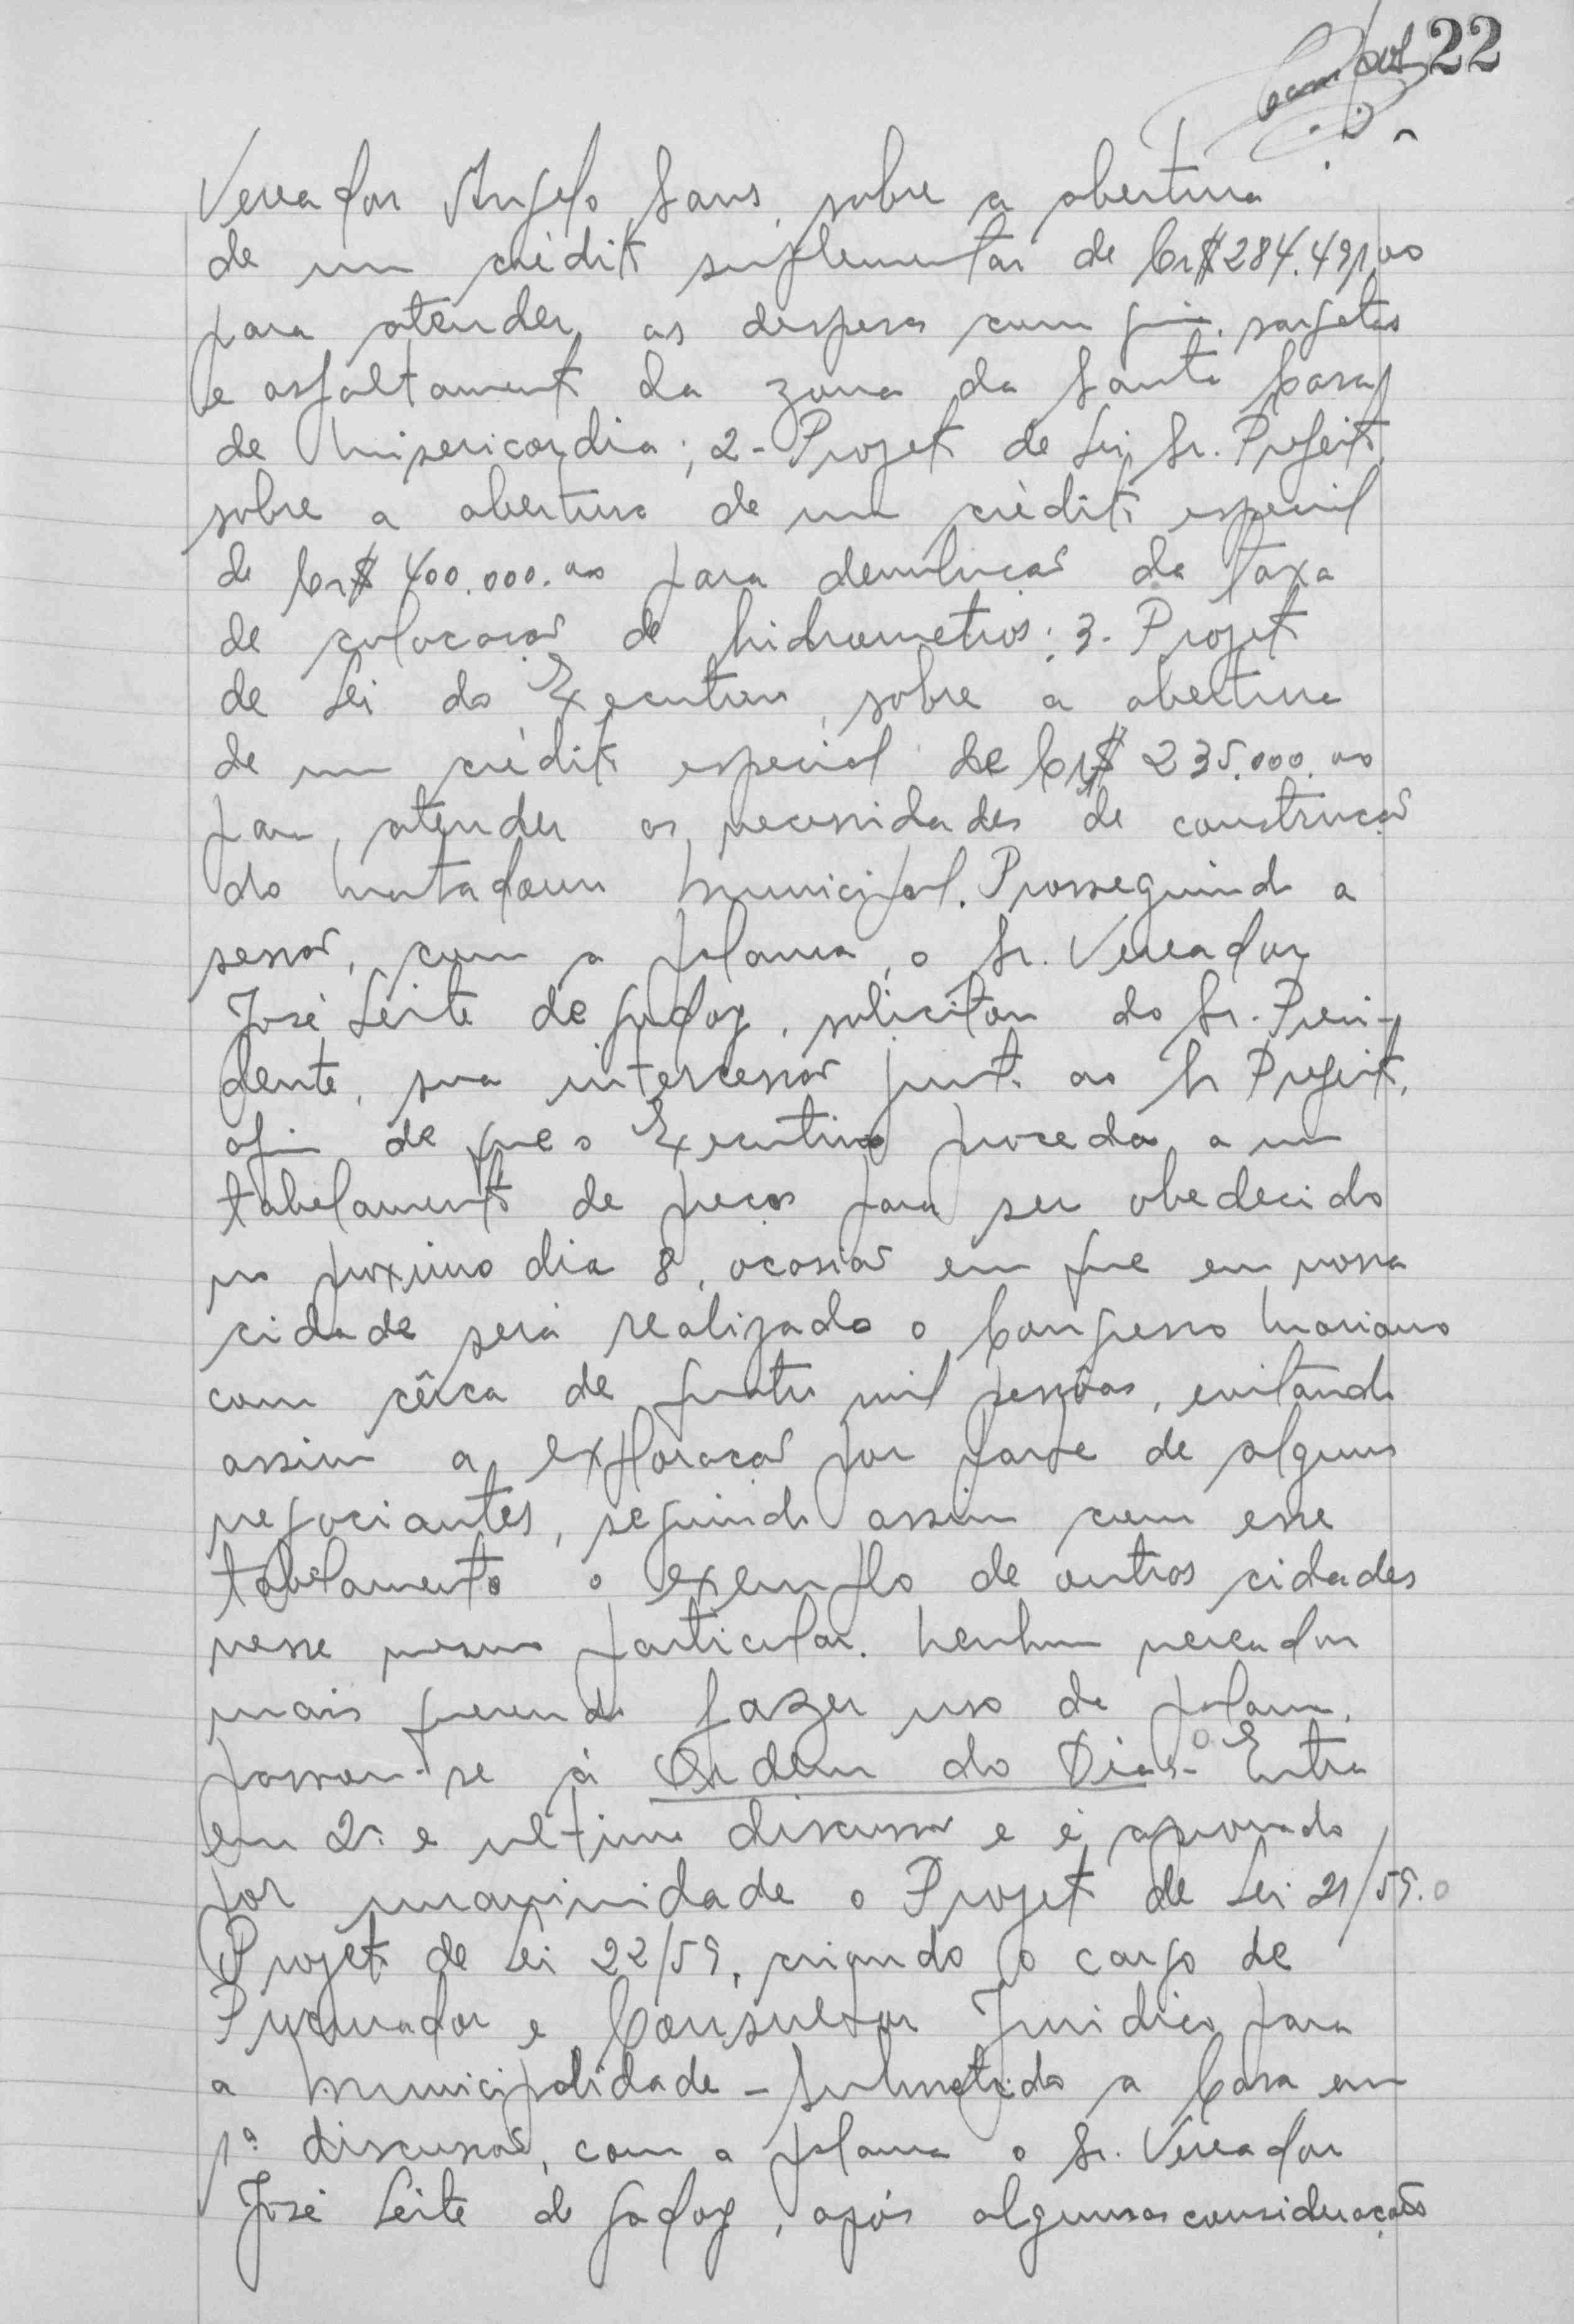 22
Vereador Angelo Sans, sobre a abertura
de um crédito suplementar de Cr$ 284.491,00
para atender as despesas com guias, sargetas
e asfaltamento da zona da Santa Casa
de Misericordia; 2- Projeto de Lei, Sr. Prefeito,
sobre a abertura de um crédito especial
de Cr$ 400.000.00 para devolução da taxa
de colocação de hidrometros; 3- Projeto
de Lei do Executivo, sobre a abertura
de um crédito especial de Cr$ 235.000.00
para atender as necessidades de construção
do Matadouro Municipal. Prosseguindo a
sessão, com a palavra, o Sr. Vereador
José Leite de Godoy, solicitou do Sr. Presi-
dente, sua intercessão junto ao Sr Prefeito,
afim de que o Executivo proceda a um
tabelamento de preços para ser obedecido
no proximo dia 8, ocasião em que em nossa
cidade será realizado o Congresso Mariano
com cêrca de quatro mil pessôas, evitando
assim a exploração por parte de alguns
negociantes, seguindo assim com esse
tabelamento o exemplo de outras cidades
nesse mesmo particular. Nenhum vereador
mais querendo fazer uso da palavra,
passou-se à Ordem do Dia:- Entra
em 2ª e ultima discussão e é aprovado
por unanimidade o Projeto de Lei 21/59. O
Projeto de Lei 22/59, criando o cargo de
Procurador e Consultor Juridico para
a Municipalidade - Submetido a Casa em
1ª discussão, com a palavra o Sr. Vereador
José Leite de Godoy, após algumas considerações